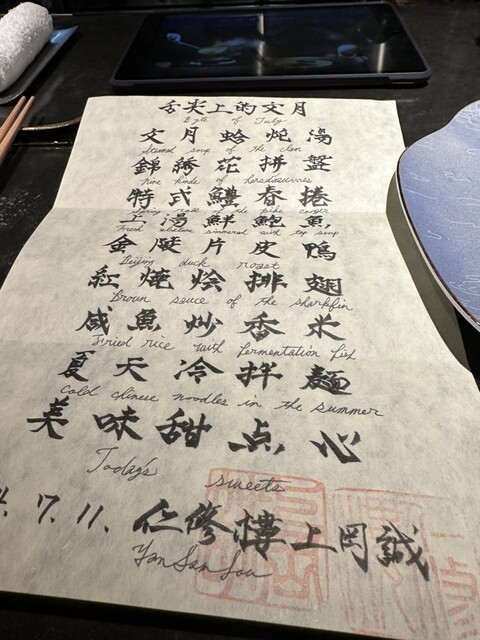 舌尖上的文月
of July
文月蛤炖湯
Steamed soup of the clam
錦綉花拼盤
Nine kinds of horsdoeuvres
特式鱧春捲
Spring roll of the pike conger
上湯鮮鮑魚
Fresh abalone simmered with top soup
金廷片皮鴨
Beijing duck roast
紅燒烩排翅
Brown sauce of the sharkfin
咸魚炒香米
Fried rice with fermentation fish
夏天冷拌麵
Cold chinese noodles in the summer
美味甜点心
Today's sweets
7.11. 仁修樓上岡誠
Yan Sau Lou